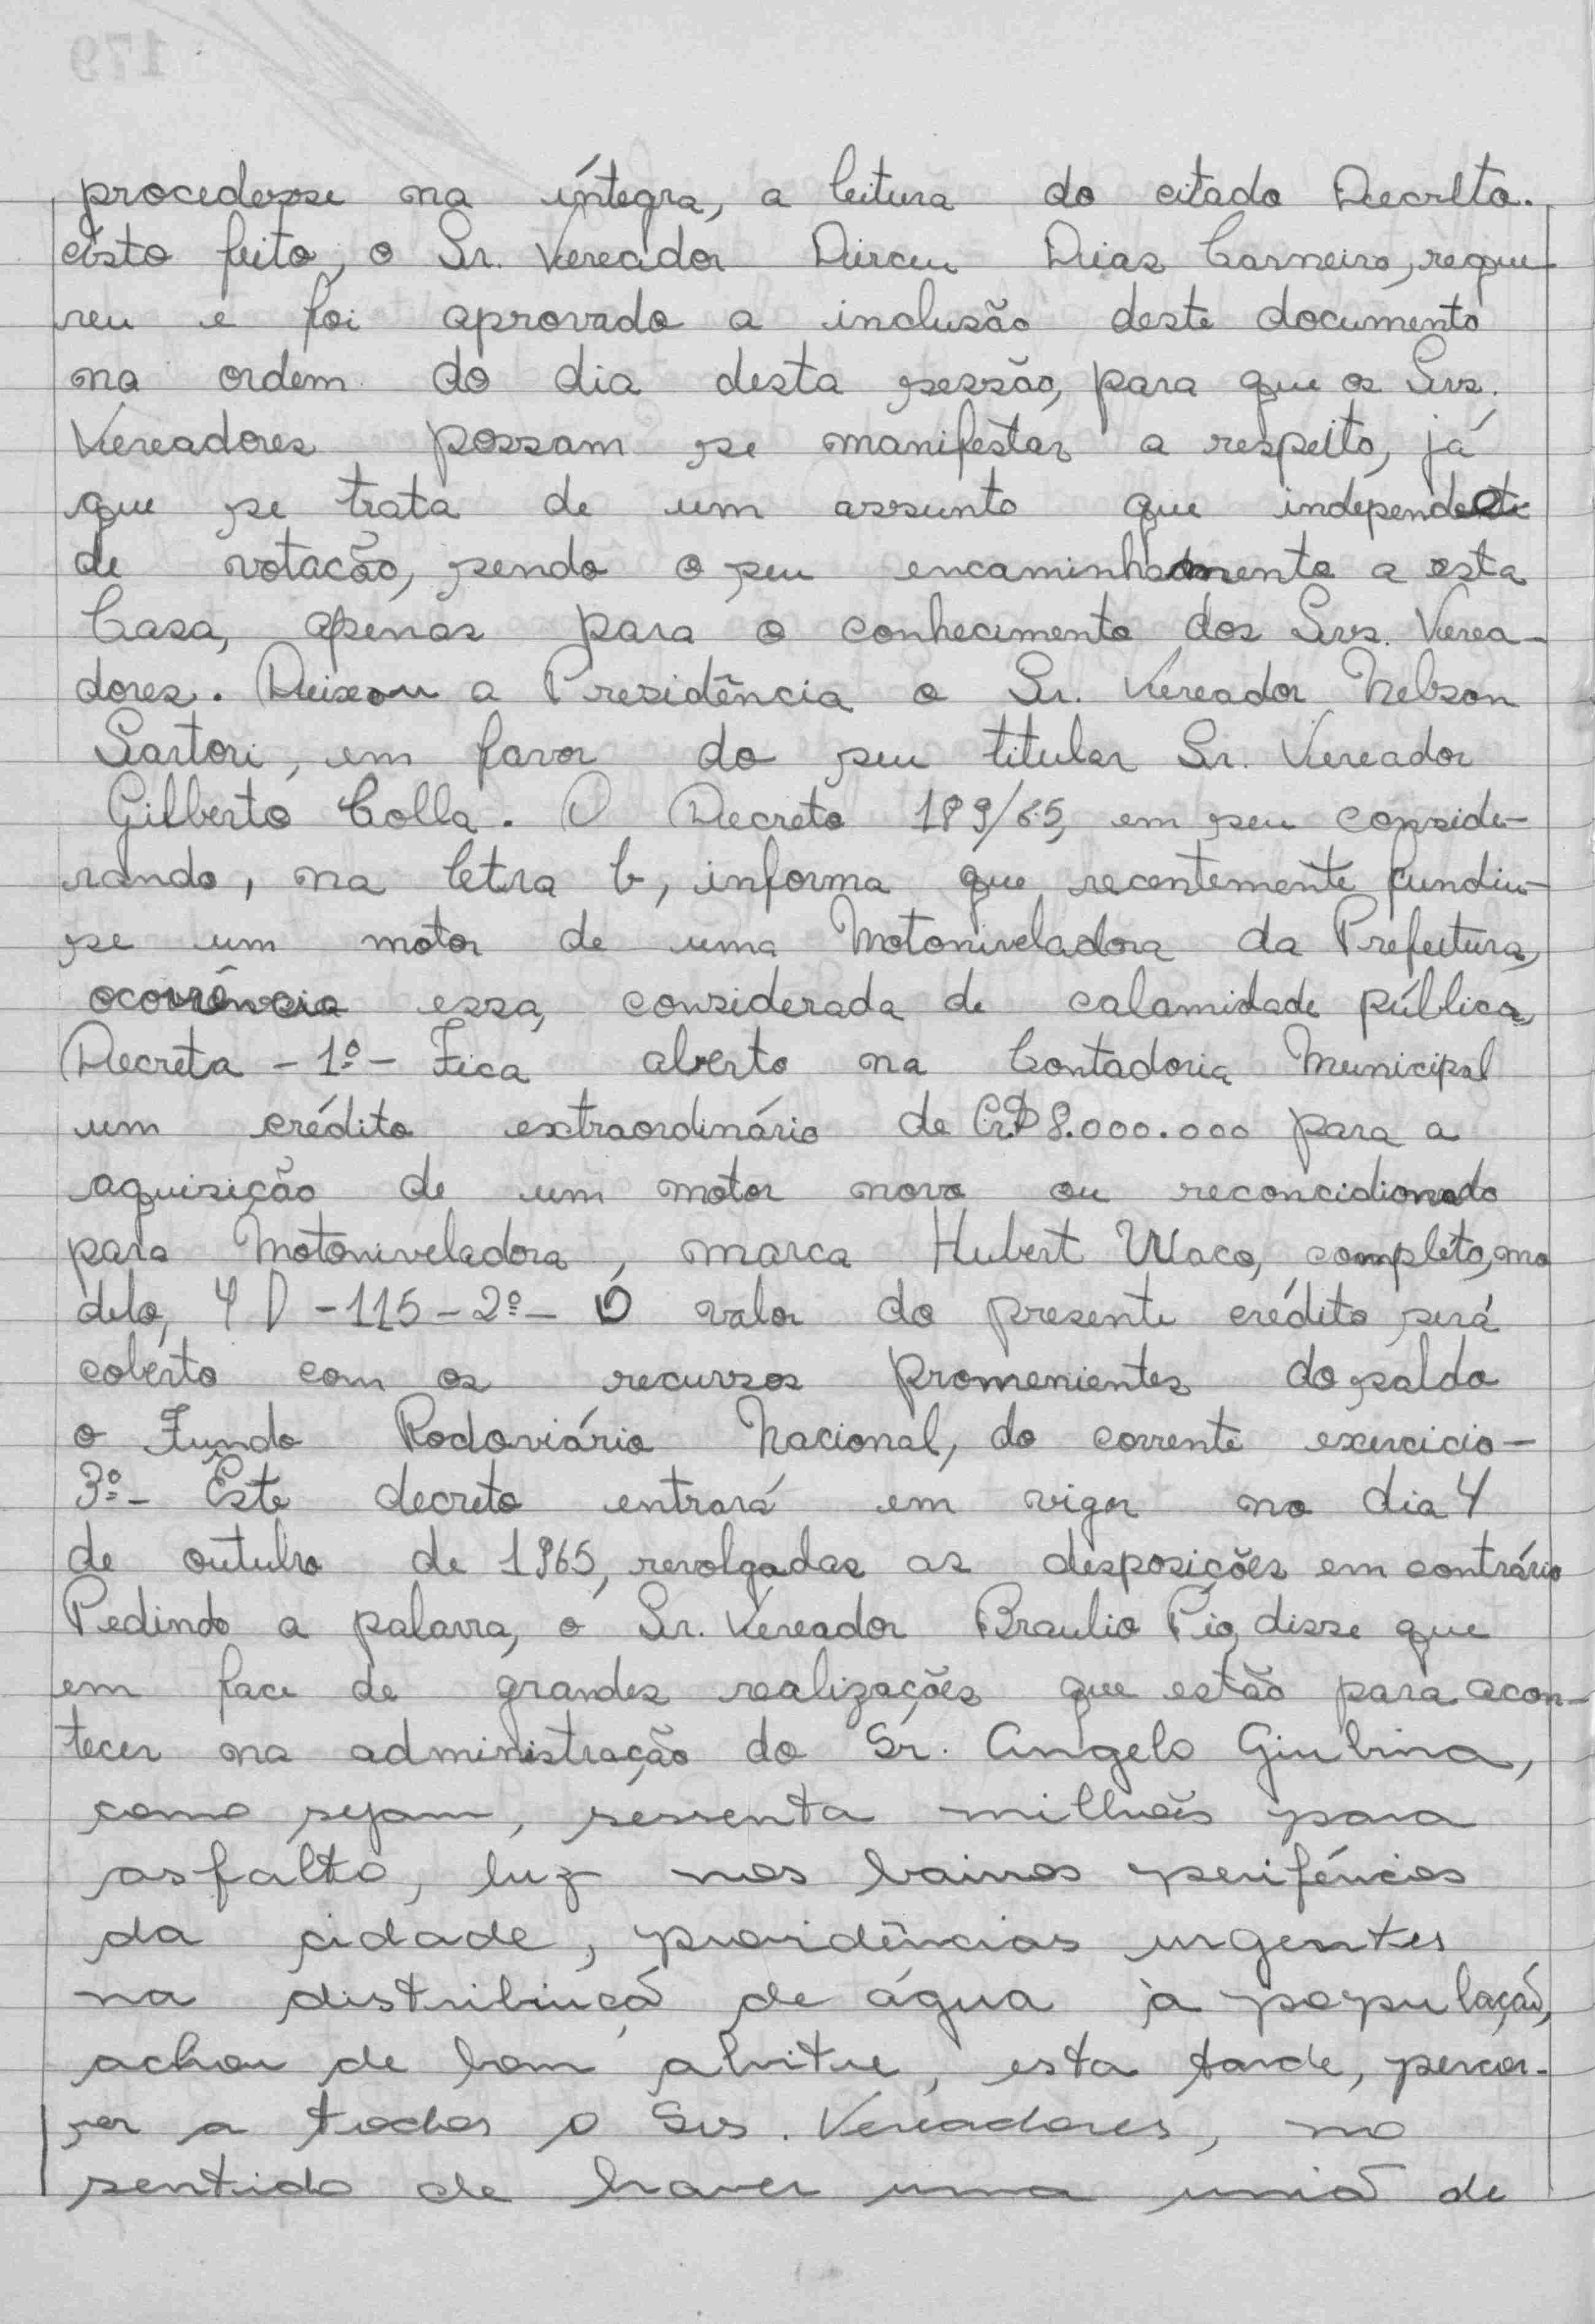 procedesse na íntegra, a leitura do citado Decreto.
isto feito, o Sr. Vereador Dirceu Dias Carneiro, reque-
reu e foi aprovado a inclusão deste documento
na ordem do dia desta sessão, para que os Srs.
Vereadores possam se manifestar a respeito, já
que se trata de um assunto que independente
de votacão, sendo o seu encaminhamento a esta
Casa, apenas para o conhecimento dos Srs. Verea-
dores. Deixou a Presidência o Sr. Vereador Nelson
Sartori, em favor do seu titular Sr. Vereador
Gilberto Colla. O Decreto 189/65, em seu conside-
rando, na letra b, informa que recentemente fundiu-
se um motor de uma Motoniveladora da Prefeitura,
ocorrência essa, considerada de calamidade pública,
Decreta - 1º - Fica aberto na Contadoria Municipal
um crédito extraordinário de Cr$ 8.000.000 para a
aquisição de um motor novo ou reconcidionado
para Motoniveladora, marca Hubert Waco, completo, mo
delo, 4 D - 115 - 2º - O valor do presente crédito será
coberto com os recursos promenientes do saldo
o Fundo Rodoviário Nacional, do corrente exercicio -
3º - Este decreto entrará em vigor no dia 4
de outubro de 1965, revolgadas as desposições em contrário
Pedindo a palavra, o Sr. Vereador Braulio Pio, disse que
em face de grandes realizações que estão para acon-
tecer na administração do Sr. Angelo Giubina,
como sejam, sessenta milhões para
asfalto, luz nos bairros periféricos
da cidade, providências urgentes
na distribuiçã de água à população,
achou de bom alvitre, esta tarde, percor-
rer a todos o Srs. Vereadores, no
sentido de haver uma uniã de
179